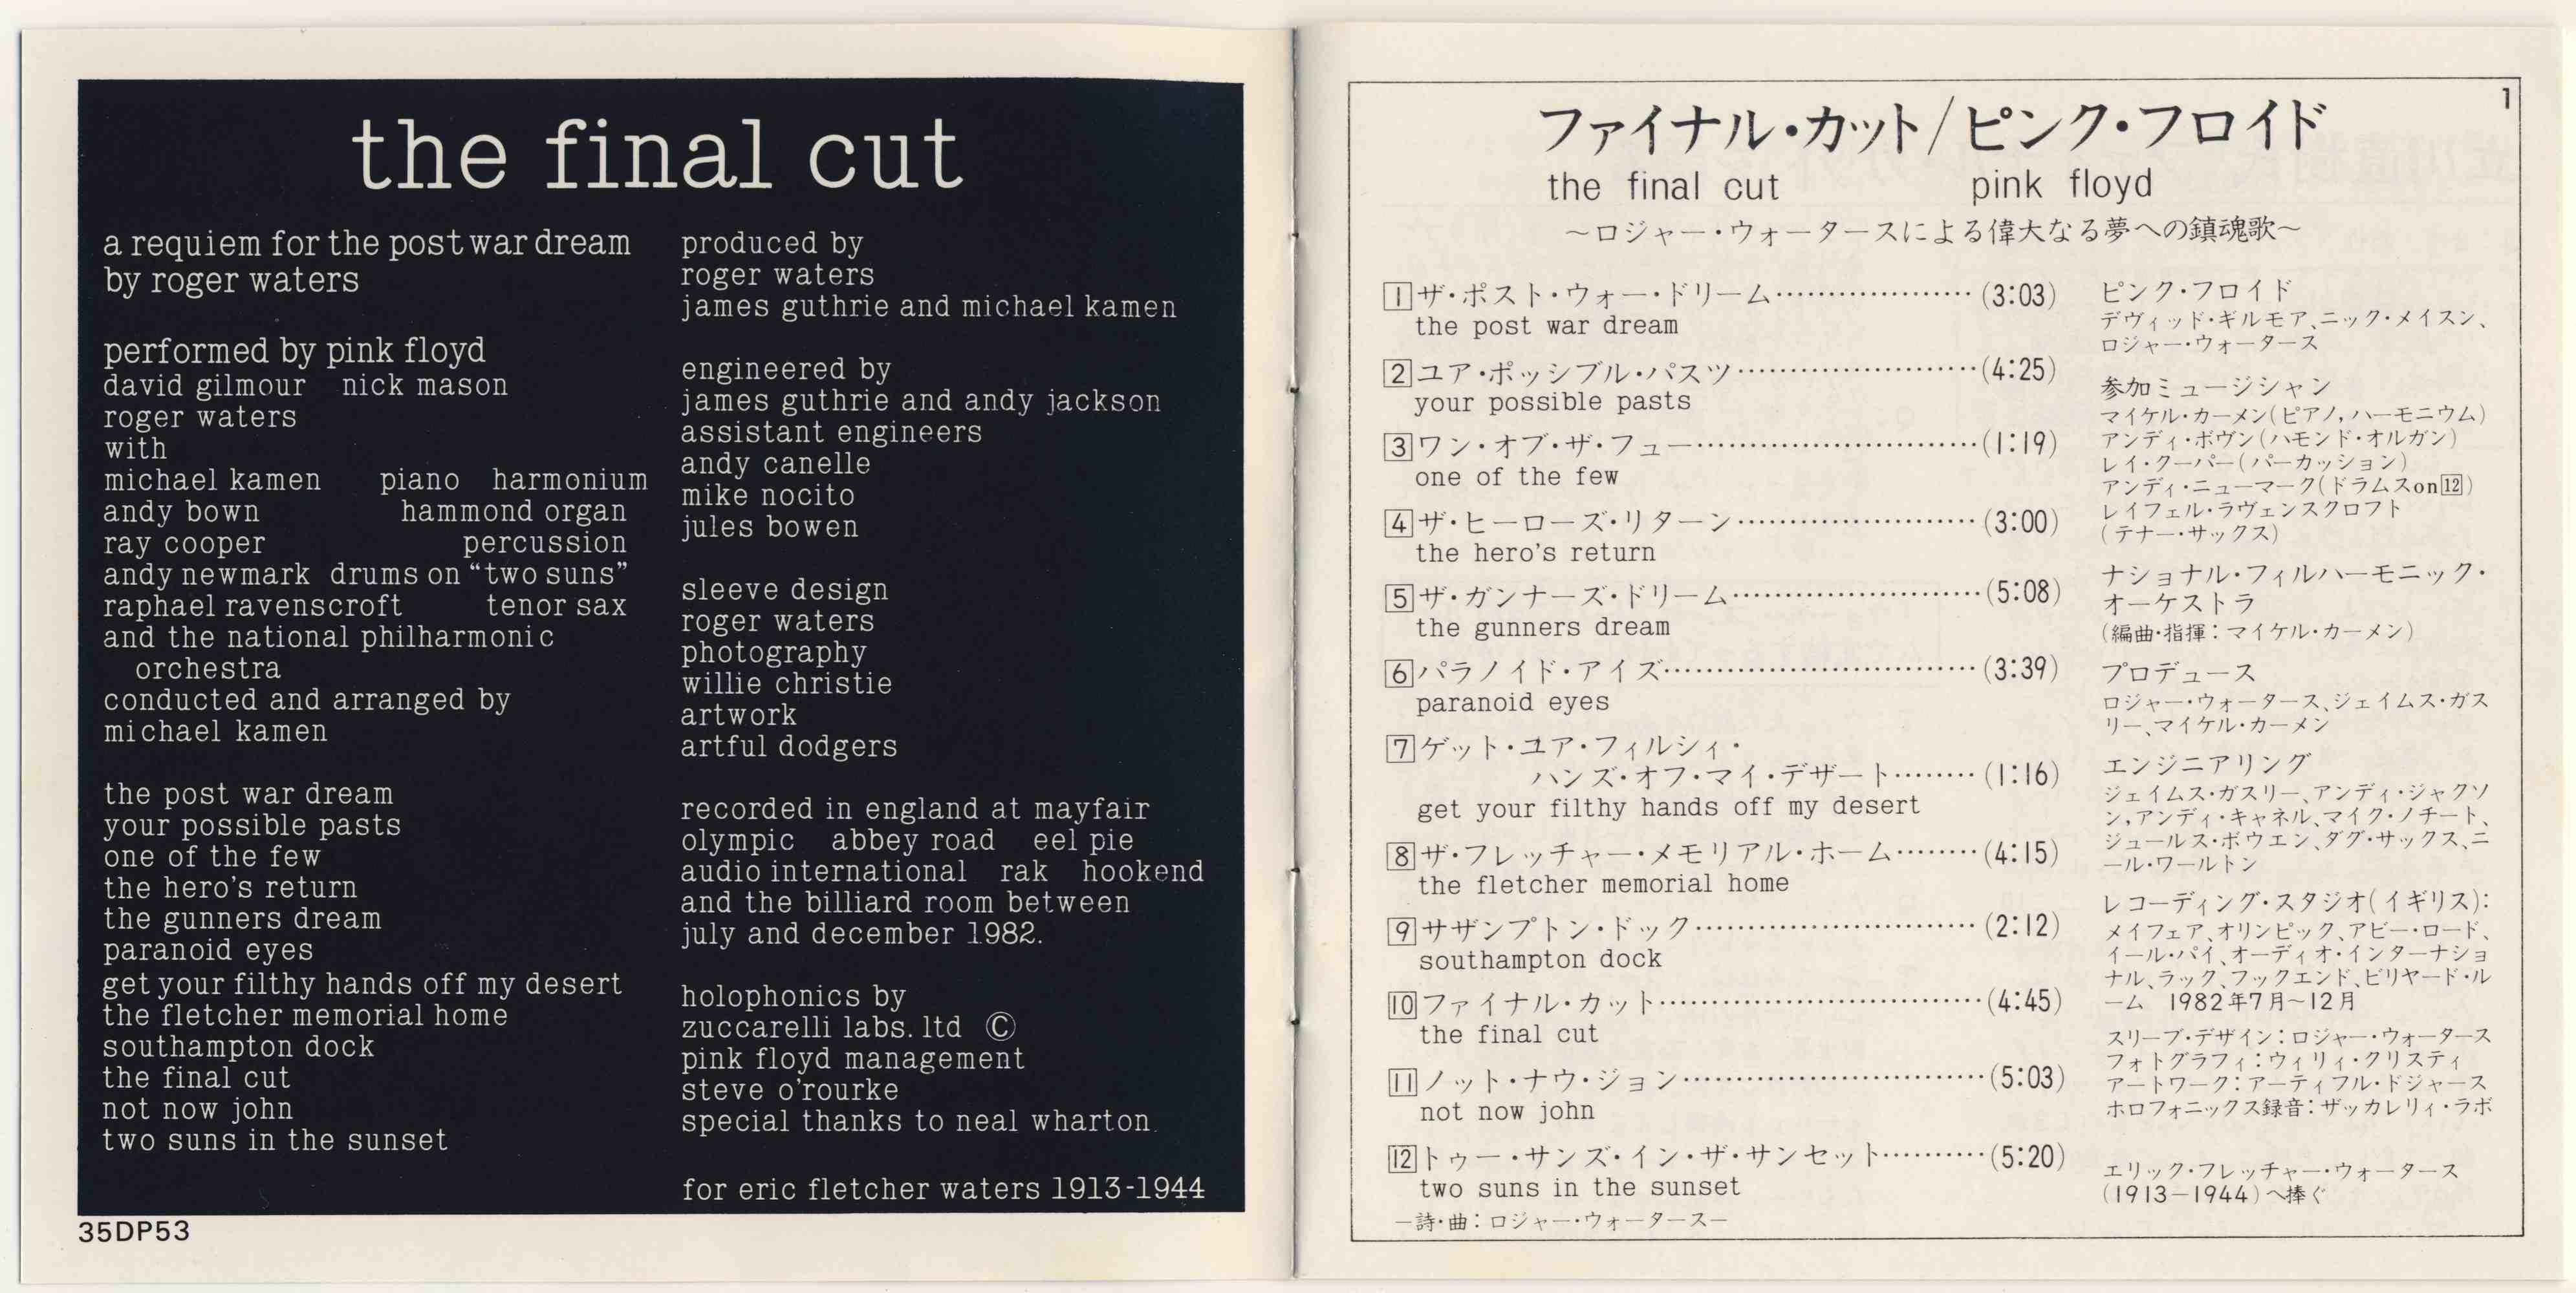 the final cut
a requiem for the post war dream
by roger waters
performed by pink floyd
david gilmour nick mason
roger waters
with
michael kamen piano harmonium
andy bown hammond organ
ray cooper percussion
andy newmark drums on “two suns”
raphael ravenscroft tenor sax
and the national philharmonic
orchestra
conducted and arranged by
michael kamen
the post war dream
your possible pasts
one of the few
the hero's return
the gunners dream
paranoid eyes
get your filthy hands off my desert
the fletcher memorial home
southampton dock
the final cut
not now john
two suns in the sunset
produced by
roger waters
james guthrie and michael kamen
engineered by
james guthrie and andy jackson
assistant engineers
andy canelle
mike nocito
jules bowen
sleeve design
roger waters
photography
willie christie
artwork
artful dodgers
recorded in england at mayfair
olympic abbey road eel pie
audio international rak hookend
and the billiard room between
july and december 1982.
holophonics by
zuccarelli labs. ltd ©
pink floyd management
steve o'rourke
special thanks to neal wharton.
for eric fletcher waters 1913-1944
35DP53
1
ファイナル・カット/ピンク・フロイド
the final cut pink floyd
〜ロジャー・ウォータースによる偉大なる夢への鎮魂歌〜
1 ザ・ポスト・ウォー・ドリーム…………………(3:03)
the post war dream
2 ユア・ポッシブル・パスツ……………………(4:25)
your possible pasts
3 ワン・オブ・ザ・フュー…………………………(1:19)
one of the few
4 ザ・ヒーローズ・リターン……………………(3:00)
the hero's return
5 ザ・ガンナーズ・ドリーム……………………(5:08)
the gunners dream
6 パラノイド・アイズ……………………………(3:39)
paranoid eyes
7 ゲット・ユア・フィルシィ・
ハンズ・オフ・マイ・デザート………(1:16)
get your filthy hands off my desert
8 ザ・フレッチャー・メモリアル・ホーム………(4:15)
the fletcher memorial home
9 サザンプトン・ドック…………………………(2:12)
southampton dock
10 ファイナル・カット……………………………(4:45)
the final cut
11 ノット・ナウ・ジョン…………………………(5:03)
not now john
12 トゥー・サンズ・イン・ザ・サンセット…………(5:20)
two suns in the sunset
—詩・曲：ロジャー・ウォータース—
ピンク・フロイド
デヴィッド・ギルモア、ニック・メイスン、
ロジャー・ウォータース
参加ミュージシャン
マイケル・カーメン(ピアノ,ハーモニウム)
アンディ・ボヴン(ハモンド・オルガン)
レイ・クーパー(パーカッション)
アンディ・ニューマーク(ドラムスon12)
レイフェル・ラヴェンスクロフト
(テナー・サックス)
ナショナル・フィルハーモニック・
オーケストラ
(編曲・指揮：マイケル・カーメン)
プロデュース
ロジャー・ウォータース、ジェイムス・ガス
リー、マイケル・カーメン
エンジニアリング
ジェイムス・ガスリー、アンディ・ジャクソ
ン,アンディ・キャネル、マイク・ノチート、
ジュールス・ボウエン、ダグ・サックス、ニ
ール・ワールトン
レコーディング・スタジオ(イギリス)：
メイフェア、オリンピック、アビー・ロード、
イール・パイ、オーディオ・インターナショ
ナル、ラック、フックエンド、ビリヤード・ル
ーム 1982年7月〜12月
スリーブ・デザイン：ロジャー・ウォータース
フォトグラフィ：ウィリィ・クリスティ
アートワーク：アーティフル・ドジャース
ホロフォニックス録音：ザッカレリィ・ラボ
エリック・フレッチャー・ウォータース
(1913—1944)へ捧ぐ